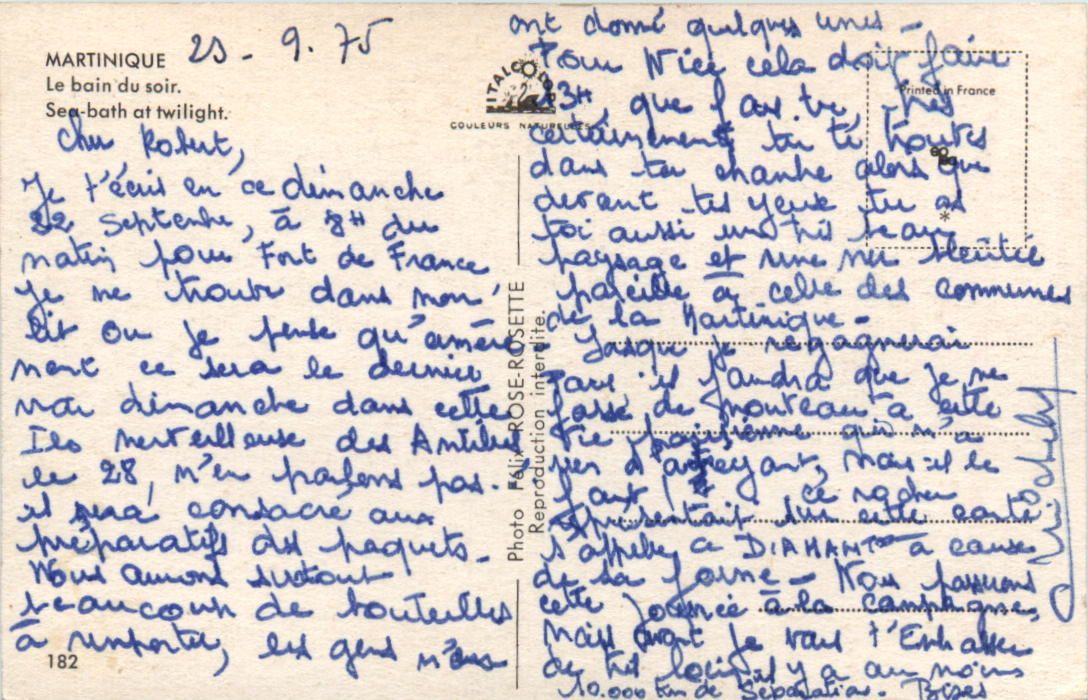 MARTINIQUE 2S - 9. 75
Le bain du soir.
Sea-bath at twilight.
Cher Robert,
Je t'écris en ce dimanche
22 Septembre, à 8H du
matin pour Fort de France
Je me trouve dans mon
lit ou je pense qu'amère
ment ce sera le dernier
vrai dimanche dans cette
Iles merveilleuse des Antilles
le 28, n'en parlons pas.
il sera consacré aux
préparatifs des paquets.
Nous aurons surtout
beaucoup de bouteilles
à remporter, les gens m'en
182
ITALCOLOR
COULEURS NATURELLES
Photo Félix ROSE-ROSETTE
Reproduction interdite.
Printed in France
ont donné quelques unes -
Pour Nice cela doit faire
13H, que fais tu, très
certainement tu te trouves
dans ta chambre alors que
devant tes yeux tu as
toi aussi un très beau
paysage et une mer
pareille à celle des communes
de la Martinique -
Lorsque je regagnerai
Paris il faudra que je me
fasse de nouveau à cette
vie parisienne qui n'a
rien d'attrayant, mais il le
faut, ce rocher
représentait sur cette carte
s'appelle DIAMANT à cause
de sa forme - Nous passons
cette journée à la campagne,
Mais avant je vais t'Embrasser
de très loin il y a au moins
10.000 km de Séparation Bises